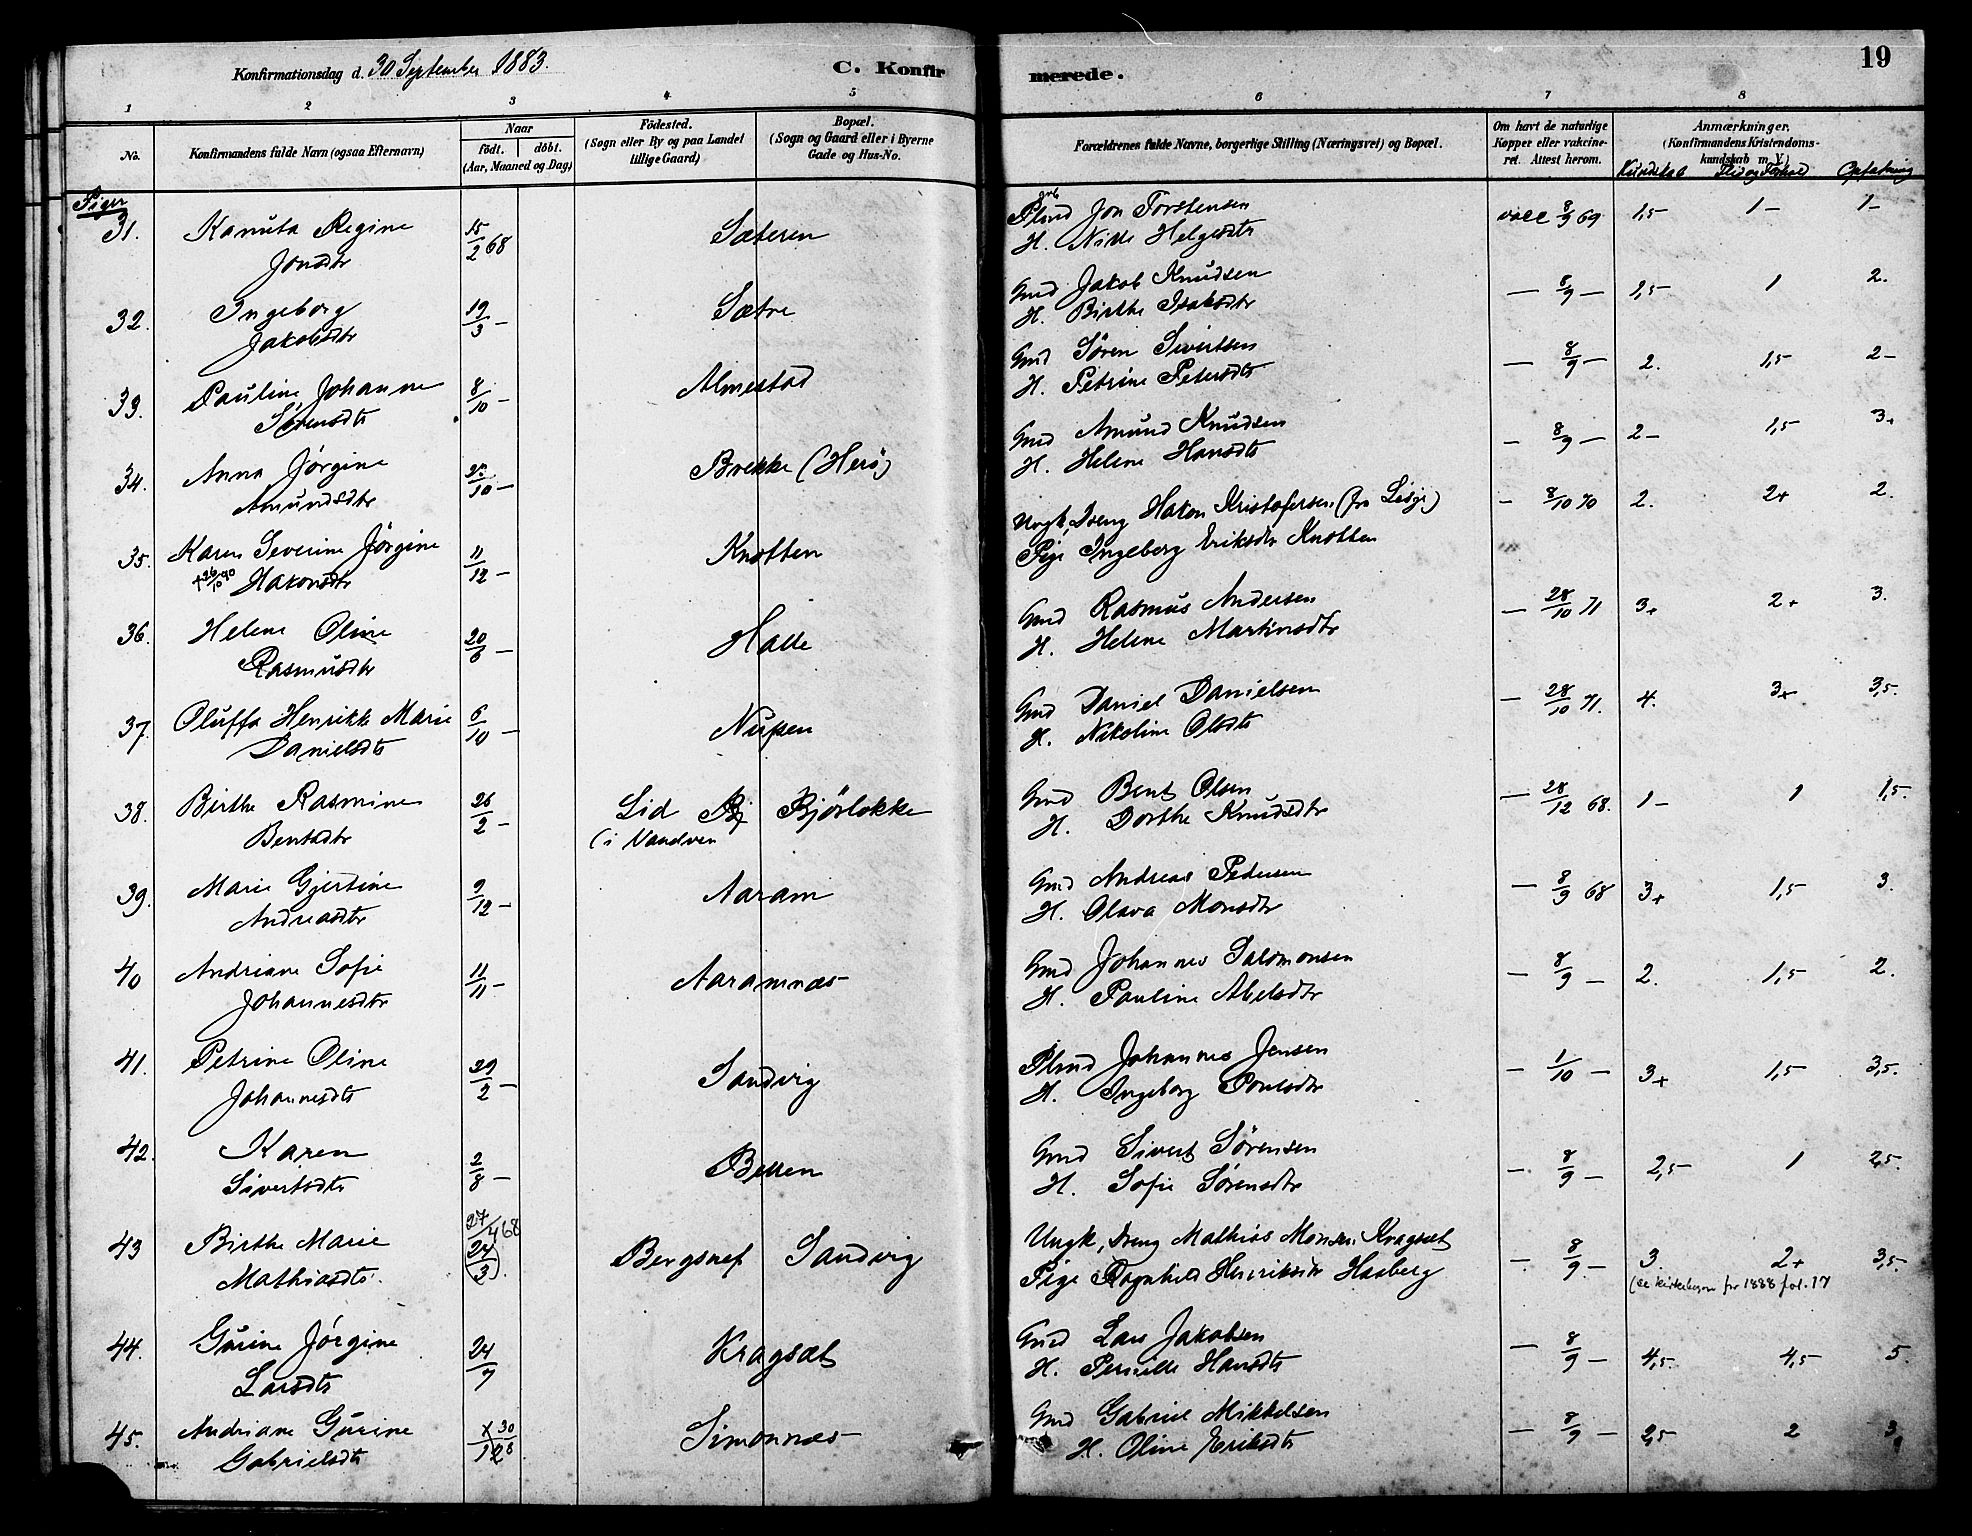 Konfirmationsdag d. 30 September 1883.
C. Konfirmerede.
19
1 2 3 4 5 6 7 8
No.
Konfirmandens fulde Navn (ogsaa Efternavn)
Naar
födt. döbt.
(Aar, Maaned og Dag)
Födested.
(Sogn eller By og paa Landet
tillige Gaard)
Bopæl.
(Sogn og Gaard eller i Byerne
Gade og Hus-No.
Forældrenes fulde Navne, borgerlige Stilling (Næringsvei) og Bopæl.
Om havt de naturlige
Kopper eller vakcine-
ret. Attest herom.
Anmærkninger.
(Konfirmandens Kristendoms-
kundskab m. V.)
Kundskab Flid og Forhold Opfatning
Piger
31. Kanuta Regine 15/2 68 Sæteren Plmd Jon Torstensen vacc 8/9 69 1,5 1- 1-
Jonsdtr H. Nille Helgesdtr
32. Ingeborg 19/3 - Sætre Gmd Jakob Knudsen - 8/9 - 1,5- 1 2.
Jakobsdtr H. Birthe Isaksdtr
33. Pauline Johanne 8/10 - Almestad Gmd Sören Sivertsen - 8/9 - 2. 1,5 2-
Sörensdtr H. Petrine Petersdtr
34. Anna Jörgine 10 - Brekke (Herö) Gmd Amund Knudsen - 8/9 - 2- 1,5 3+
Amundsdtr H. Helene Hansdtr
35. Karen Severine Jörgine 11/12 - Knotten Ungk, Dreng Hakon Kristofersen (fra Lesje) - 8/10 70 2. 2+ 2.
+ 26/10 90 Hakonsdtr Pige Ingeborg Eriksdtr Knotten
36. Helene Oline 20/6 - Halle Gmd Rasmus Andersen - 28/10 71 3+ 2+ 3.
Rasmusdtr H. Helene Martinsdtr
37. Oluffa Henrikke Marie 6/10 - Nupen Gmd Daniel Danielsen - 28/10 71. 4. 3+ 3,5.
Danielsdtr H. Nikoline Olsdtr
38. Birthe Rasmine 26/2 - Lid Bj Bjørlokke Gmd Bent Olsen - 28/12 68. 1- 1 1,5.
Bentsdtr (i Vandven H. Dorthe Knudsdtr
39. Marie Gjertine 9/12 - Aaram Gmd Andreas Pedersen - 8/9 68 3+ 1,5 3.
Andreasdtr H. Olava Monsdtr
40 Andriane Sofie 11/11 - Aaramnæs Gmd Johannes Salomonsen - 8/9 - 2. 1,5 2.
Johannesdtr H. Pauline Abelsdtr
41. Petrine Oline 29/2 - Sandvig Plmd Johannes Jensen - 1/10 - 3+ 1,5 3,5.
Johannesdtr H. Ingeborg Poulsdtr
42. Karen 2/8 - Berren Gmd Sivert Sörensen - 8/9 - 2,5- 1 2,5.
Sivertsdtr H. Sofie Sörensdtr
43 Birthe Marie 27/4 68 Bergsnef Sandvig Ungk, Dreng Mathias Monsen Kragsæt - 8/9 - 3. 2+ 3,5.
Mathiasdtr. 24/3. Pige Ragnhild Henriksdtr Hasberg (se kirkebogen for 1888 fol. 17
44. Gurine Jörgine 24/7 Kragsæt Gmd Lars Jakobsen - 8/9 - 4,5. 4,5 5.
Larsdtr H. Pernille Hansdtr
45. Andriane Gurine 30 Simonnæs Gmd Gabriel Mikkelsen - 8/9 - 2,5 2 3
Gabrielsdtr 12 8 H. Oline Eriksdtr